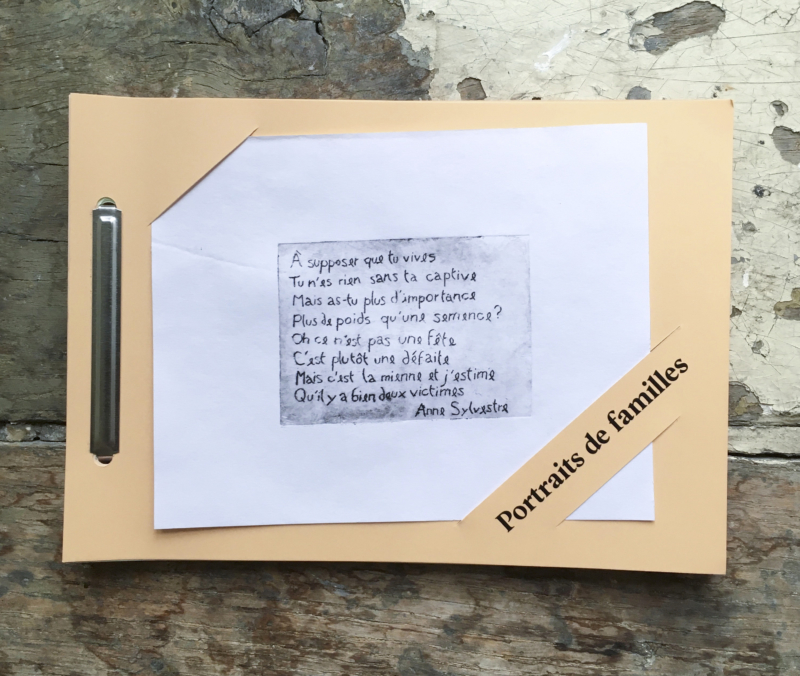 À supposer que tu vives
Tu n'es rien sans ta captive
Mais as-tu plus d'importance
Plus de poids qu'une semence?
Oh ce n'est pas une fête
C'est plutôt une défaite
Mais c'est la mienne et j'estime
Qu'il y a bien deux victimes
Anne Sylvestre
Portraits de familles